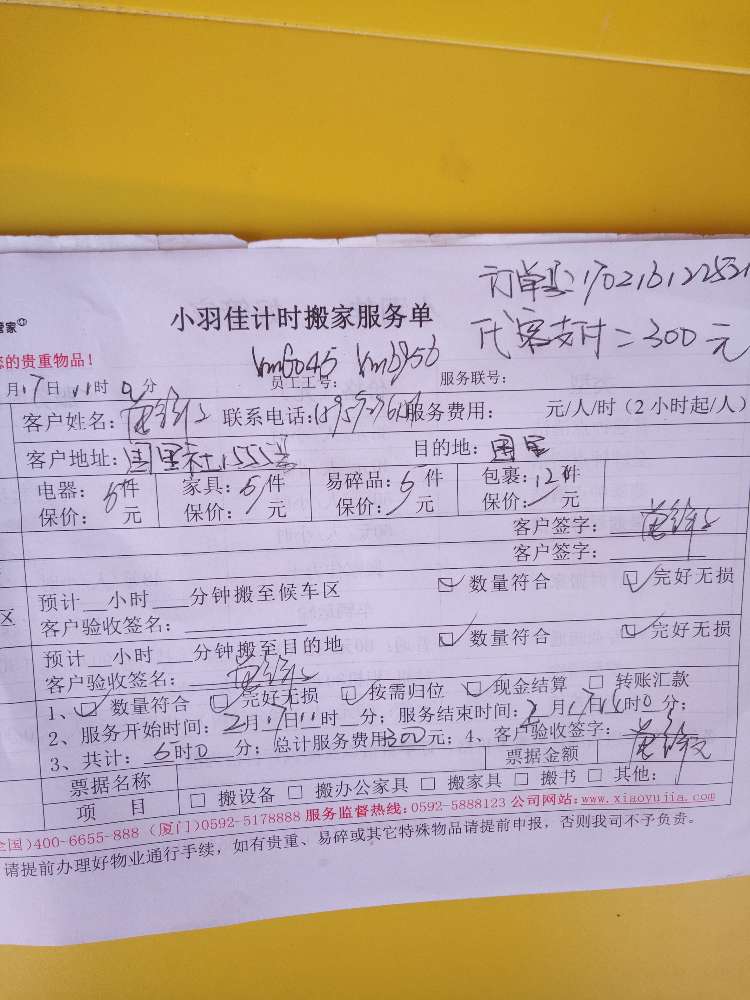 订单号:170216122521
代客支付=300元
管家
小羽佳计时搬家服务单
您的贵重物品!
月17日11时0分
员工工号:
服务联号:
客户姓名: 联系电话: 服务费用: 元/人/时(2小时起/人)
客户地址: 目的地:
电器:5件 家具:5件 易碎品:5件 包裹:12件
保价: 元 保价: 元 保价: 元 保价: 元
客户签字:
客户签字:
预计__小时___分钟搬至候车区 ☑ 数量符合 ☑ 完好无损
区 客户验收签名:
预计__小时___分钟搬至目的地 ☑ 数量符合 ☑ 完好无损
客户验收签名:
1、☑ 数量符合 ☑ 完好无损 ☑ 按需归位 ☑ 现金结算 □ 转账汇款
2、服务开始时间:2月17日11时__分;服务结束时间:2月17日 时0分;
3、共计:5时0分;总计服务费用300元;4、客户验收签字:
票据名称 票据金额
项 目 □ 搬设备 □ 搬办公家具 □ 搬家具 □ 搬书 □ 其他:
全国)400-6655-888 (厦门)0592-5178888 服务监督热线:0592-5888123 公司网站:www.xiaoyujia.com
请提前办理好物业通行手续,如有贵重、易碎或其它特殊物品请提前申报,否则我司不予负责。